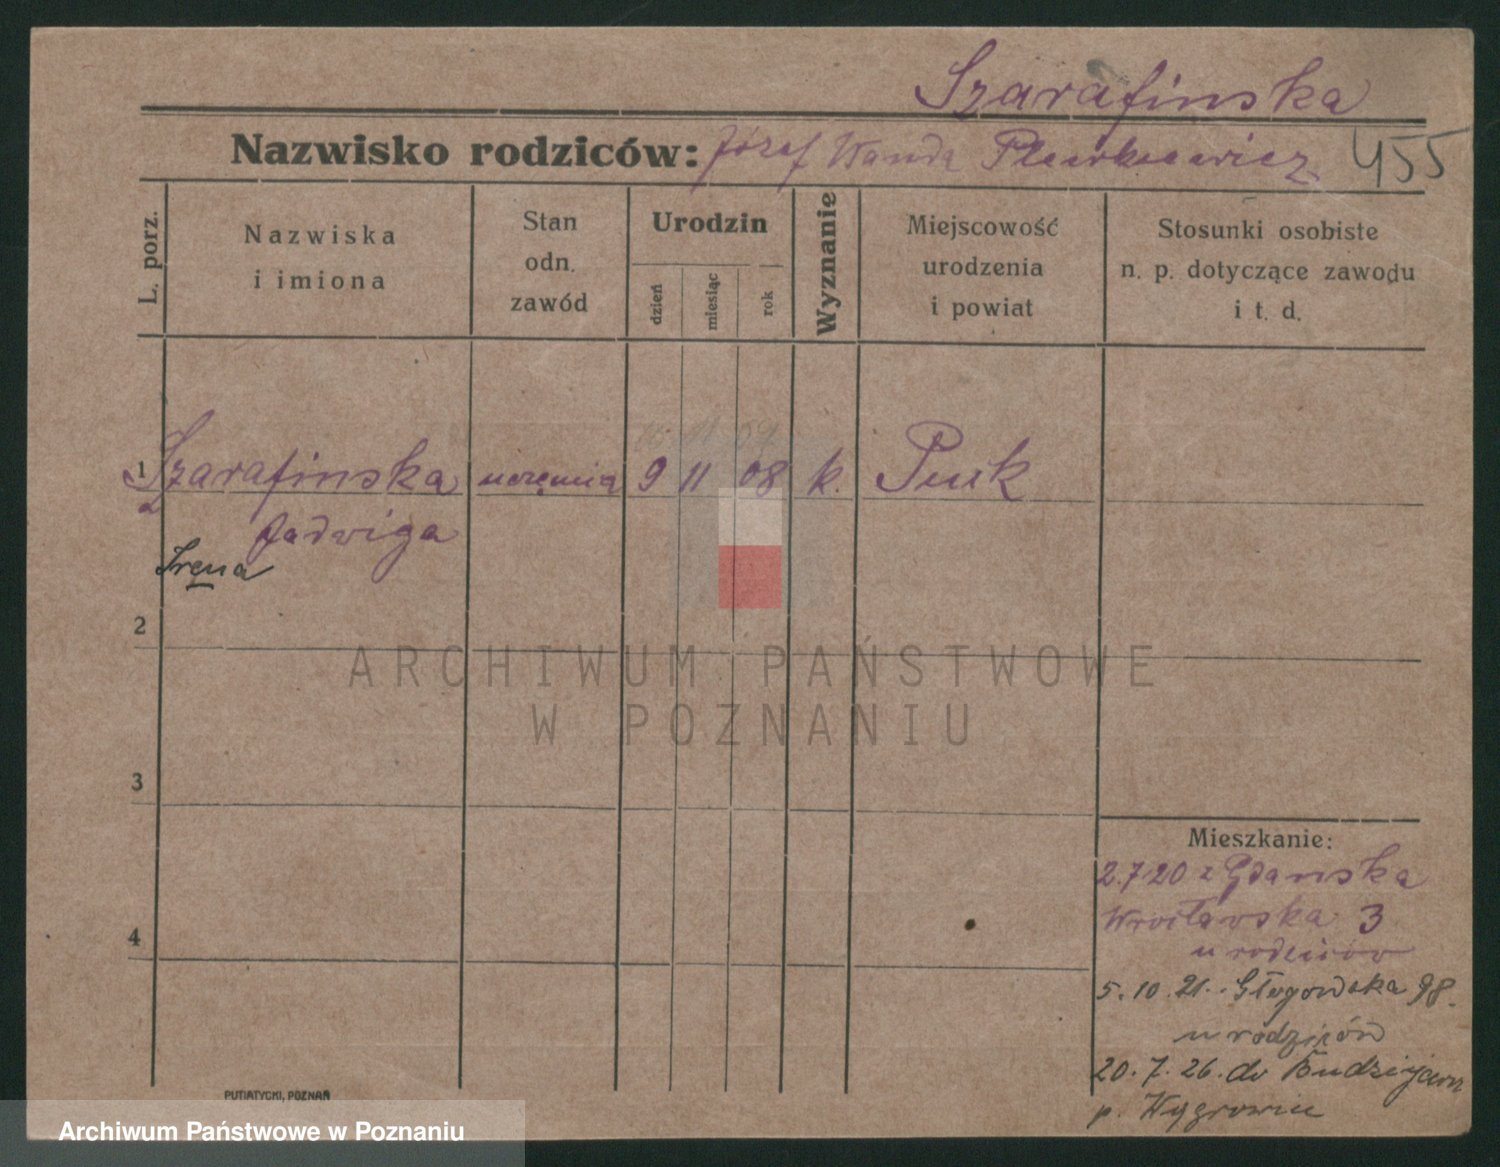 Szarafinska
Nazwisko rodziców: Józef Wanda 455
L. porz.
Nazwiska
i imiona
Stan
odn.
zawód
Urodzin
dzień
miesiąc
rok
Wyznanie
Miejscowość
urodzenia
i powiat
Stosunki osobiste
n. p. dotyczące zawodu
i t. d.
15 11 09
1 Szarafinska uczennica 9 11 08 k. Puck
Jadwiga
Irena
2
ARCHIWUM PAŃSTWOWE
W POZNANIU
3
Mieszkanie:
2.7 20 z Gdanska
Wrocławska 3
u rodziców
4
5. 10. 21. Głogowska 98.
u rodziców
20. 7. 26. do Budziejewa
p. Wągrowiec
PUTIATYCKI, POZNAŃ
Archiwum Państwowe w Poznaniu